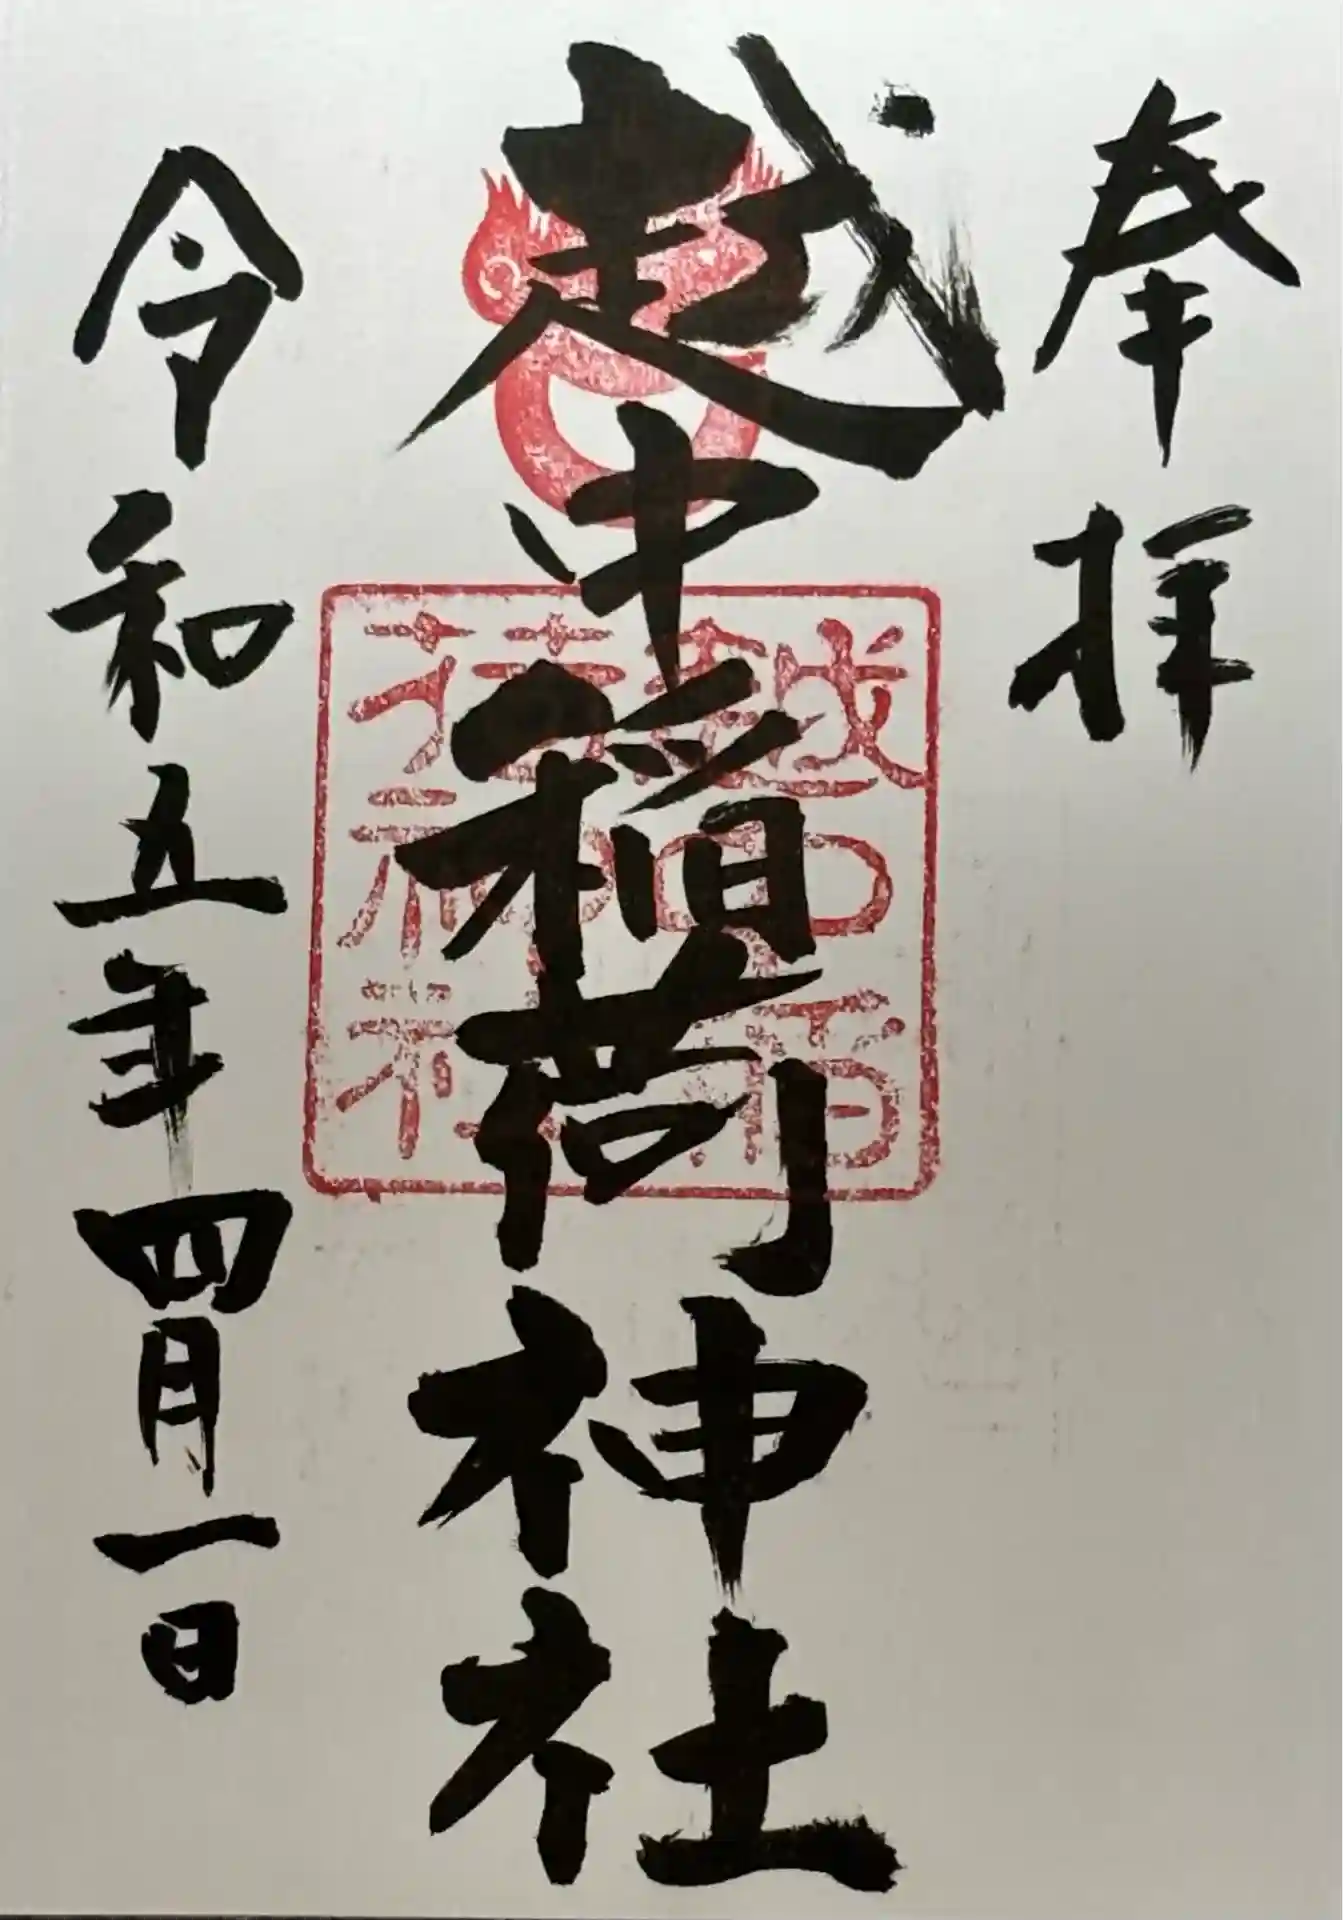 奉拝
越中稲荷神社
越中稲
荷神社
令和五年四月一日